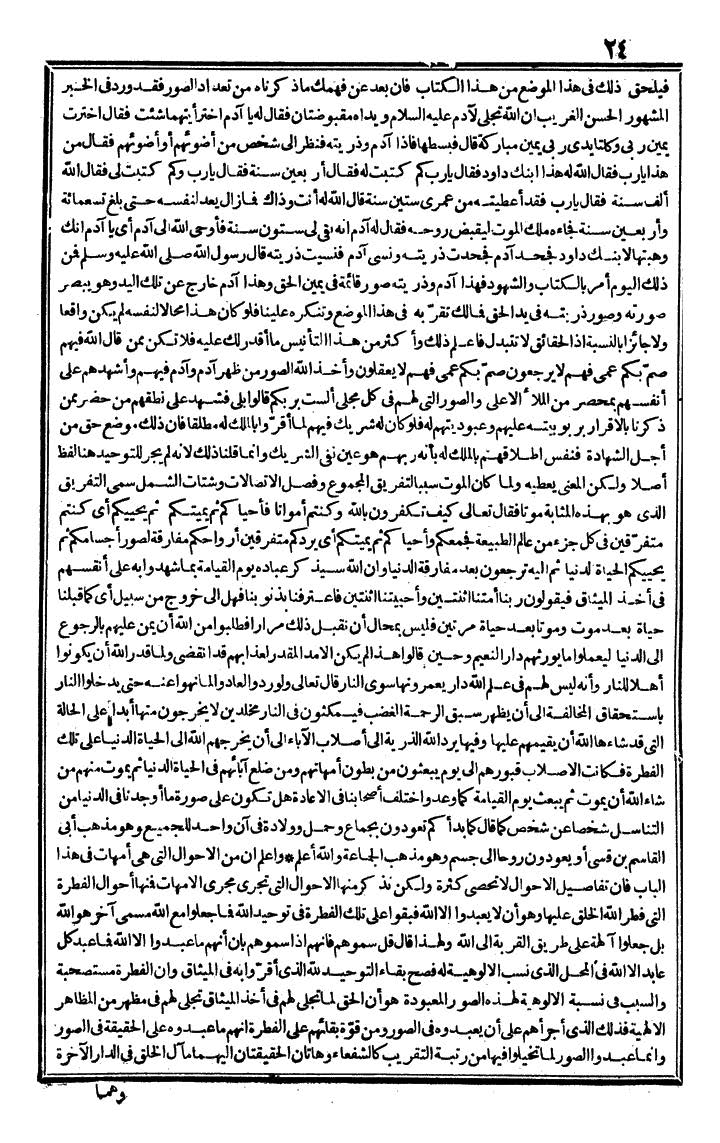 ٢٤
فيلحق ذلك فى هذا الموضع من هذا الكتاب فان بعد عن فهمك ماذكرناه من تعداد الصور فقد ورد فى الخبر
المشهور الحسن الغريب ان الله تجلى لآدم عليه السلام ويداه مقبوضتان فقال له يا آدم اختر أيتهما شئت فقال اخترت
يمين ربى وكلتا يدى ربى يمين مباركة قال فبسطها فاذا آدم وذريته فنظر الى شخص من أضوئهم أو أضوئهم فقال من
هذا يارب فقال الله له هذا ابنك داود فقال يارب كم كتبت له فقال أربعين سنة فقال يارب وكم كتبت لى فقال الله
ألف سنة فقال يارب فقد أعطيته من عمرى ستين سنة قال الله له أنت وذاك فازال يعد لنفسه حتى بلغ تسعمائة
وأربعين سنة فجاءه ملك الموت ليقبض روحه فقال له آدم انه بقى لى ستون سنة فأوحى الله الى آدم أى يا آدم انك
وهبتها لابنك داود فجحد آدم فجحدت ذريته ونسى آدم فنسيت ذريته قال رسول الله صلى الله عليه وسلم فمن
ذلك اليوم أمر بالكتاب والشهود فهذا آدم وذريته صور قائمة فى يمين الحق وهذا آدم خارج عن تلك اليد وهو يبصر
صورته وصور ذريته فى يد الحق فمالك تقرّ به فى هذا الموضع وتنكره علينا فلو كان هذا محالا لنفسه لم يكن واقعا
ولا جائزا بالنسبة اذ الحقائق لا تتبدل فاعلم ذلك وأكثر من هذا التأنيس ما أقدر لك عليه فلا تكن ممن قال الله فيهم
صمّ بكم عمى فهم لا يرجعون صمّ بكم عمى فهم لا يعقلون وأخذ الله الصور من ظهر آدم وآدم فيهم وأشهدهم على
أنفسهم بمحضر من الملأ الاعلى والصور التى لهم فى كل مجلى ألست بربكم قالوا بلى فشهد على نطقهم من حضر ممن
ذكرنا بالاقرار بربوبيته عليهم وعبوديتهم له فلو كان له شريك فيهم لما أقرّوا بالملك له مطلقا فان ذلك موضع حق من
أجل الشهادة فنفس اطلاقهم بالملك له بأنه ربهم هو عين نفى الشريك وانما قلنا ذلك لانه لم يجر للتوحيد هنا لفظ
أصلا ولكن المعنى يعطيه ولما كان الموت سببا لتفريق المجموع وفصل الاتصالات وشتات الشمل سمى التفريق
الذى هو بهذه المثابة موتا فقال تعالى كيف تكفرون بالله وكنتم أمواتا فأحياكم ثم يميتكم ثم يحييكم أى كنتم
متفرّقين فى كل جزء من عالم الطبيعة فجمعكم وأحياكم ثم يميتكم أى يردكم متفرقين أرواحكم مفارقة لصور أجسامكم ثم
يحييكم الحياة لدنيا ثم اليه ترجعون بعد مفارقة الدنيا وان الله سيذكر عباده يوم القيامة بما شهدوا به على أنفسهم
فى أخذ الميثاق فيقولون ربنا أمتنا اثنتين وأحييتنا اثنتين فاعترفنا بذنوبنا فهل الى خروج من سبيل أى كما قبلنا
حياة بعد موت وموتا بعد حياة مرتين فليس بمحال أن نقبل ذلك مرارا فطلبوا من الله أن يمن عليهم بالرجوع
الى الدنيا ليعملوا ما يورثهم دار النعيم وحين قالوا هذا لم يكن الامد المقدر لعذابهم قد انقضى ولما قدر الله أن يكونوا
أهلا للنار وأنه ليس لهم فى علم الله دار يعمرونها سوى النار قال تعالى ولو ردوا لعادوا لما نهوا عنه حتى يدخلوا النار
باستحقاق المخالفة الى أن يظهر سبق الرحمة الغضب فيمكثون فى النار مخلدين لا يخرجون منها أبدا على الحالة
التى قد شاءها الله أن يقيمهم عليها وفيها يرد الله الذرية الى أصلاب الآباء الى أن يخرجهم الله الى الحياة الدنيا على تلك
الفطرة فكانت الاصلاب قبورهم الى يوم يبعثون من بطون أمهاتهم ومن ضلع آبائهم فى الحياة الدنيا ثم يموت منهم من
شاء الله أن يموت ثم يبعث يوم القيامة كما وعد واختلف أصحابنا فى الاعادة هل تكون على صورة ما أوجدنا فى الدنيا من
التناسل شخصا عن شخص كما قال كما بدأكم تعودون بجماع وحمل وولادة فى آن واحد للجميع وهو مذهب أبى
القاسم بن قسى أو يعودون روحا الى جسم وهو مذهب الجماعة والله أعلم * واعلم ان من الاحوال التى هى أمهات فى هذا
الباب فان تفاصيل الاحوال لا تحصى كثرة ولكن نذكر منها الاحوال التى تجرى مجرى الامهات فمنها أحوال الفطرة
التى فطر الله الخلق عليها وهو أن لا يعبدوا الا الله فبقوا على تلك الفطرة فى توحيد الله فما جعلوا مع الله مسمى آخر هو الله
بل جعلوا آلهة على طريق القربة الى الله ولهذا قال قل سموهم فانهم اذا سموهم بان أنهم ما عبدوا الا الله فما عبد كل
عابد الا الله فى المحل الذى نسب الالوهية له فصح بقاء التوحيد لله الذى أقرّوا به فى الميثاق وان الفطرة مستصحبة
والسبب فى نسبة الالوهية لهذه الصور المعبودة هو أن الحق لما تجلى لهم فى أخذ الميثاق تجلى لهم فى مظهر من المظاهر
الالهية فذلك الذى أجرأهم على أن يعبدوه فى الصور ومن قوّة بقائهم على الفطرة انهم ما عبدوه على الحقيقة فى الصور
وانما عبدوا الصور لما تخيلوا فيها من رتبة التقريب كالشفعاء وهاتان الحقيقتان اليهما مآل الخلق فى الدار الآخرة
وهما